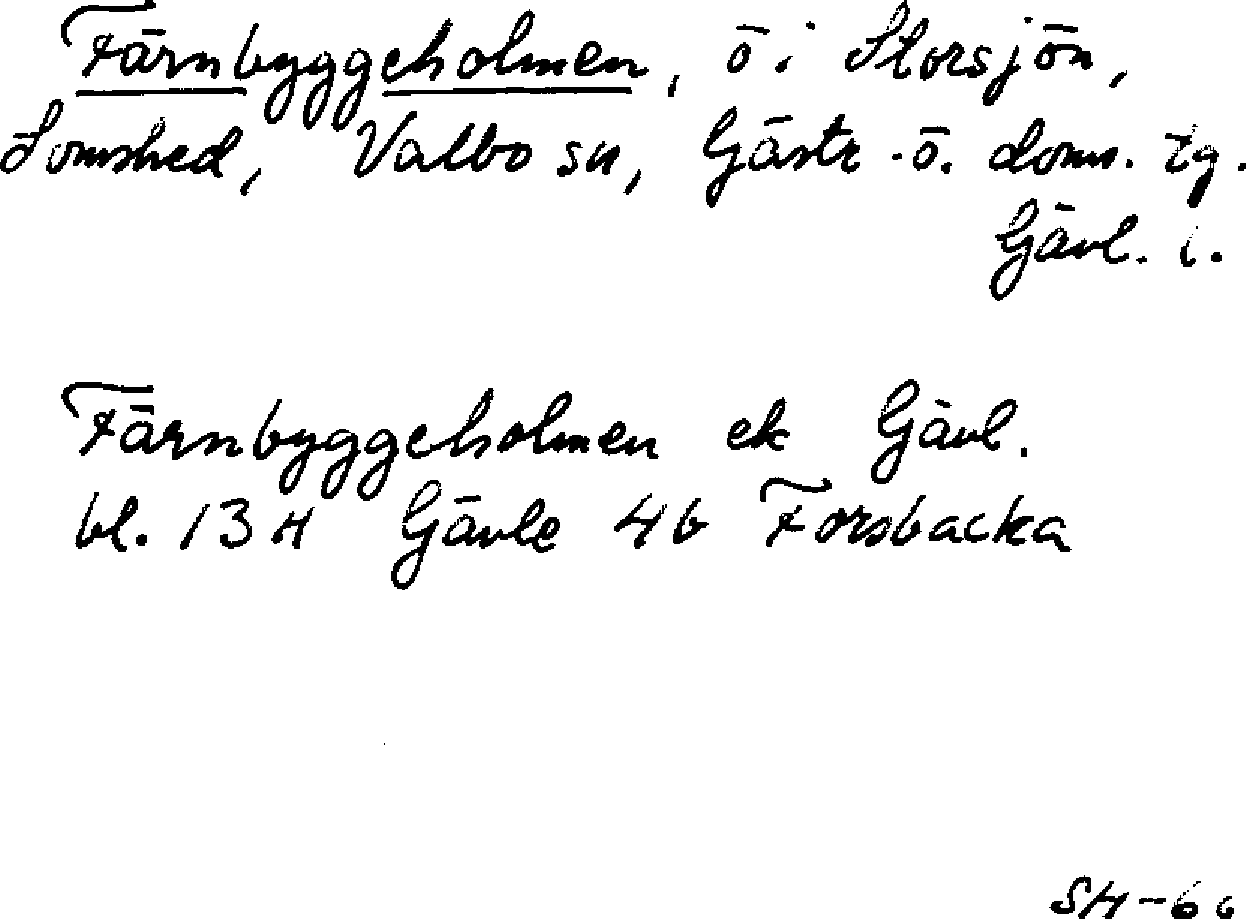 Färnbyggeholmen, ö i Storsjön,
Lomshed, Valbo sn, Gästr. ö. doms. tg.
Gävl. l.
Färnbyggeholmen ek Gävl.
bl. 13 H Gävle 4b Forsbacka
SH-66